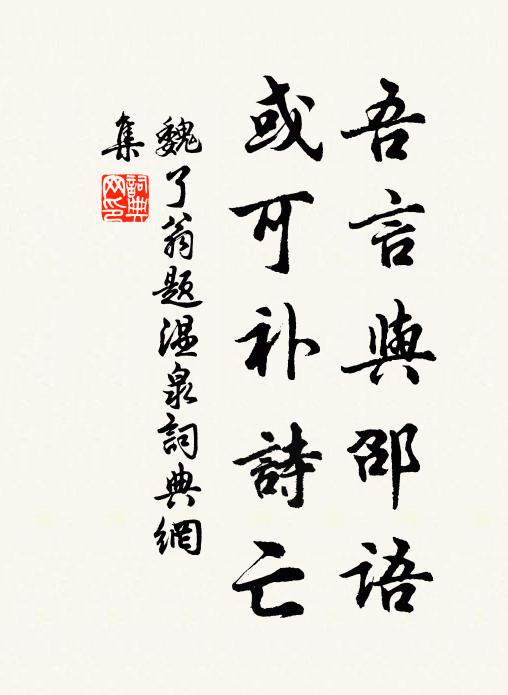 吾言與邵語
或可补詩亡
魏了翁题温泉詞典網
集
詞典網印